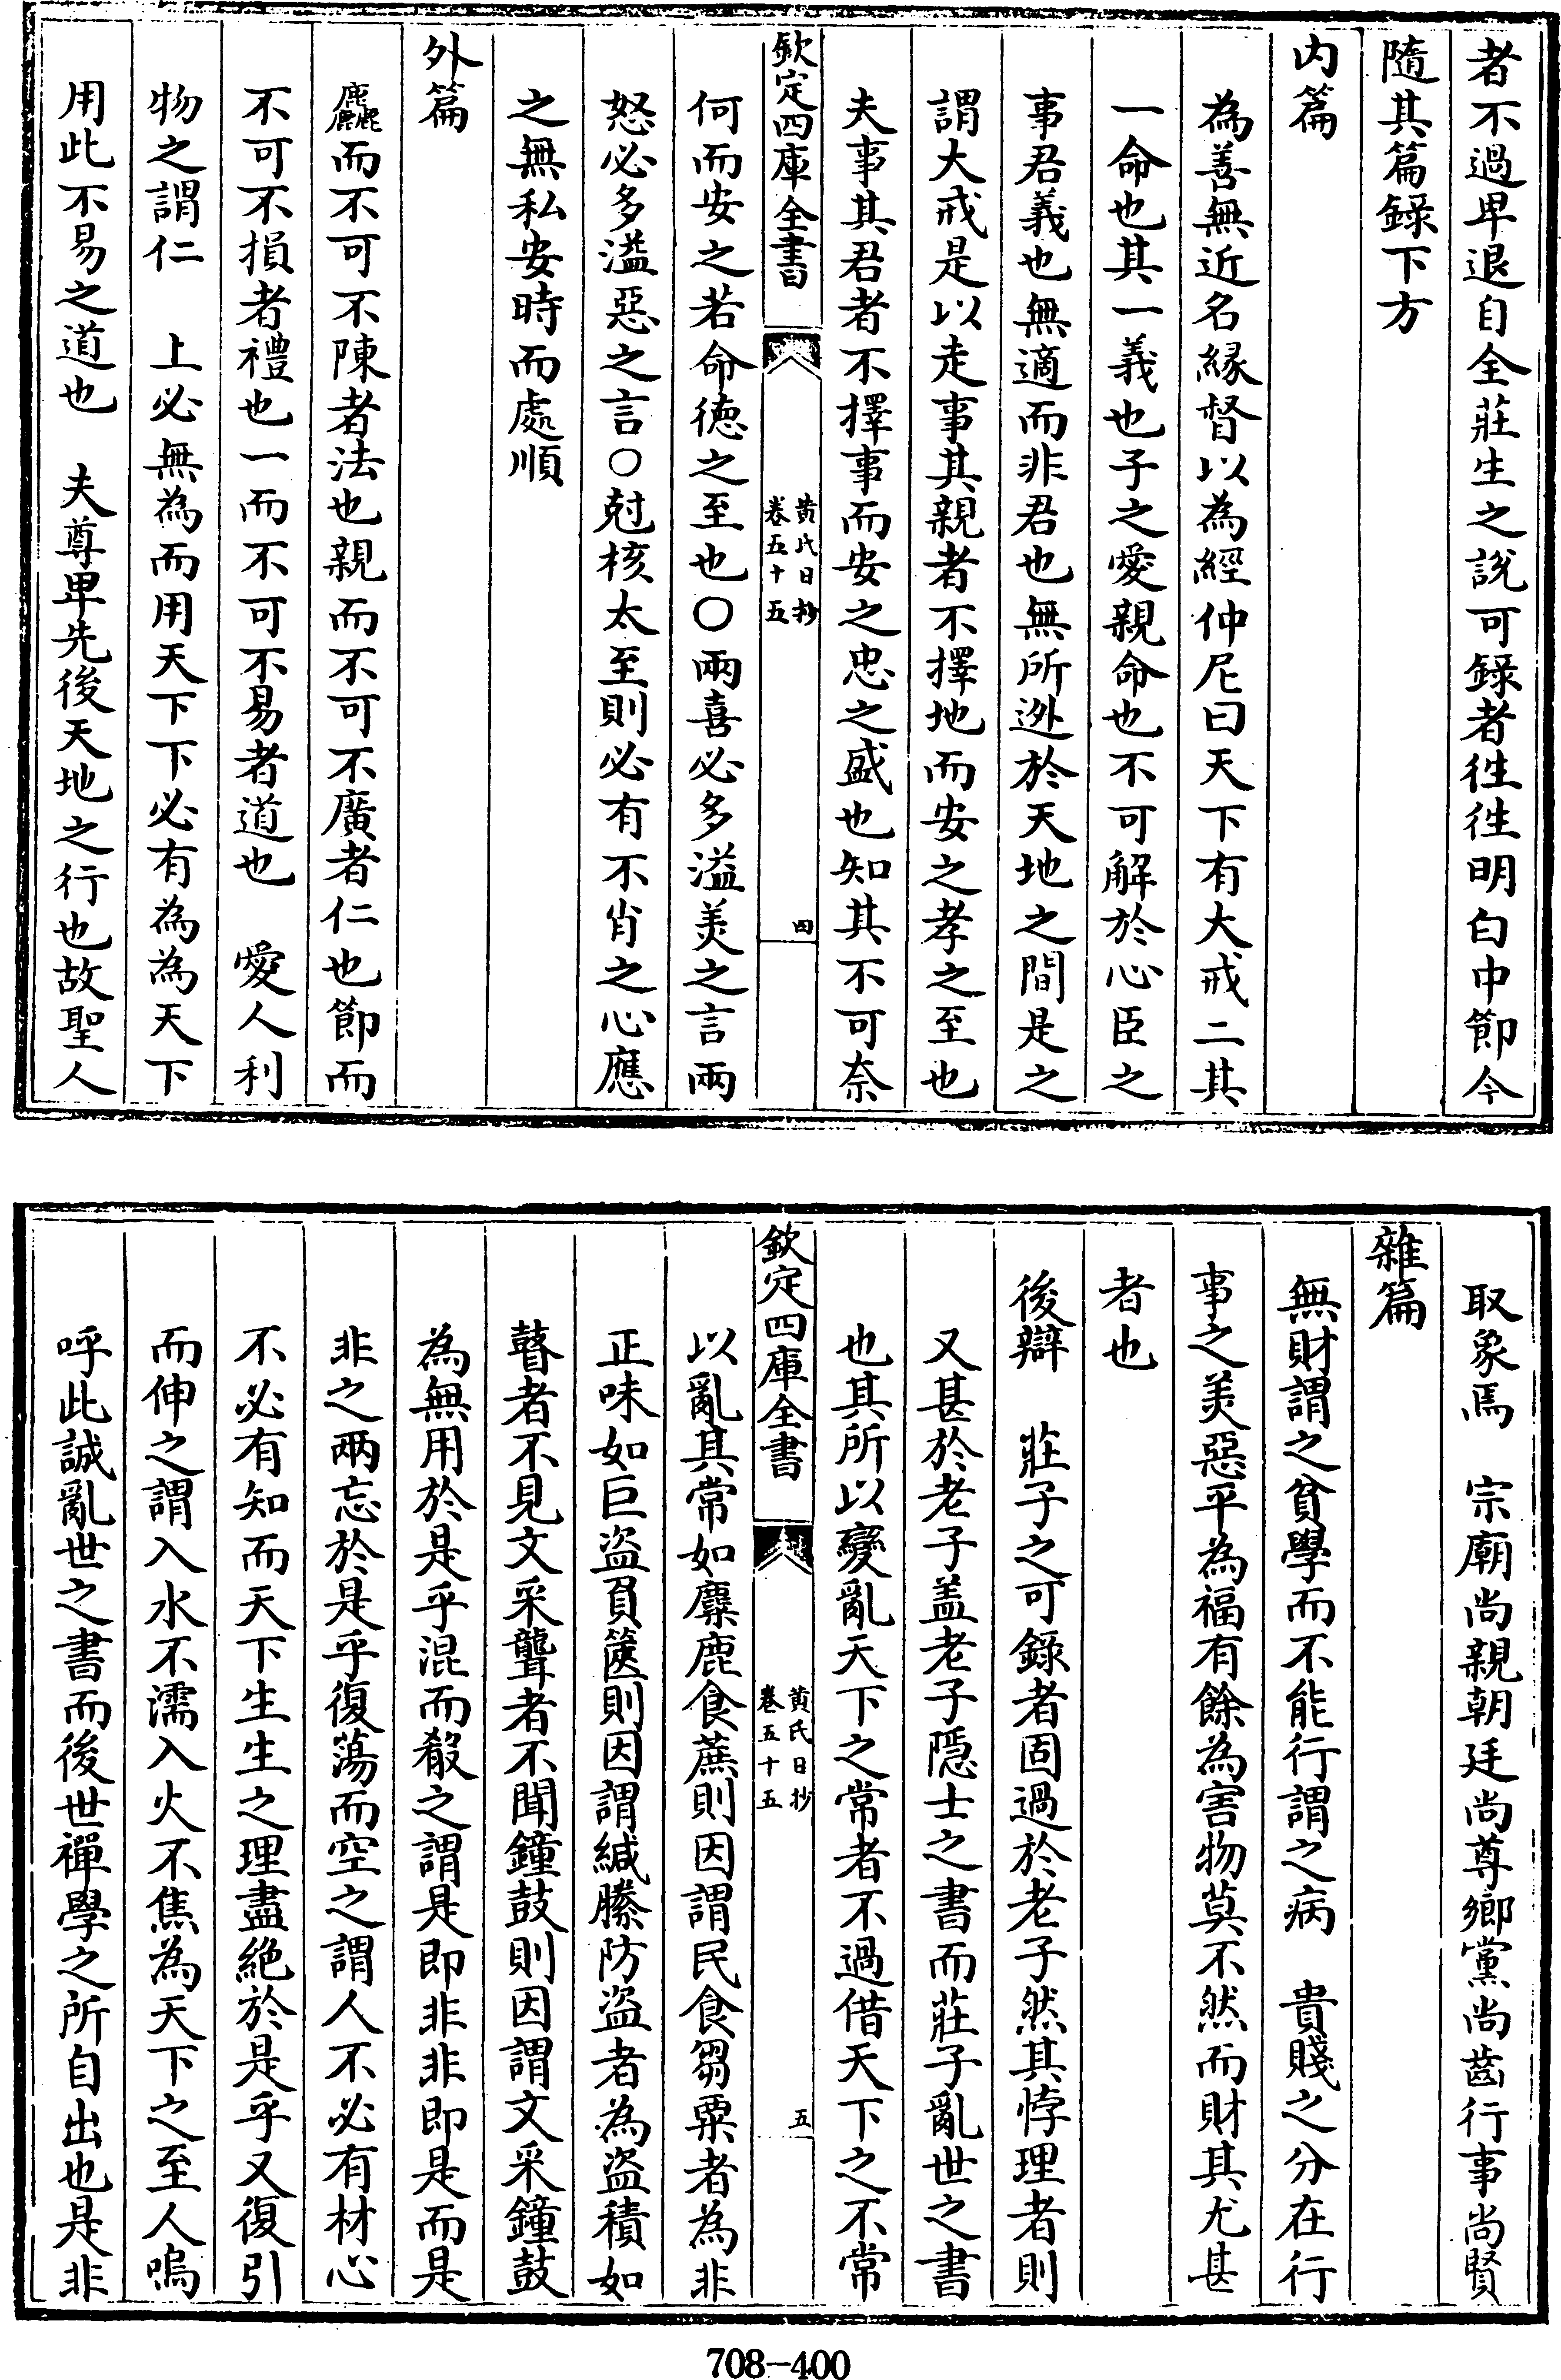 者不過卑退自全莊生之說可録者徃徃明白中節今
隨其篇録下方
内篇
為善無近名緣督以為經 仲尼曰天下有大戒二其
一命也其一義也子之愛親命也不可解於心臣之
事君義也無適而非君也無所逃於天地之間是之
謂大戒是以走事其親者不擇地而安之孝之至也
夫事其君者不擇事而安之忠之盛也知其不可奈
欽定四庫全書
黄氏日抄
卷五十五
四
何而安之若命德之至也〇兩喜必多溢美之言兩
怒必多溢惡之言〇尅核太至則必有不肖之心應
之無私安時而處順
外篇
麤而不可不陳者法也親而不可不廣者仁也節而
不可不損者禮也一而不可不易者道也 愛人利
物之謂仁 上必無為而用天下下必有為為天下
用此不易之道也 夫尊卑先後天地之行也故聖人
取象焉 宗廟尚親朝廷尚尊鄉黨尚齒行事尚賢
雜篇
無財謂之貧學而不能行謂之病 貴賤之分在行
事之美惡平為福有餘為害物莫不然而財其尤甚
者也
後辯 莊子之可錄者固過於老子然其悖理者則
又甚於老子盖老子隠士之書而莊子亂世之書
也其所以變亂天下之常者不過借天下之不常
欽定四庫全書
黄氏日抄
卷五十五
五
以亂其常如麋鹿食薦則因謂民食芻粟者為非
正味如巨盗負篋則因謂緘縢防盗者為盗積如
瞽者不見文采聾者不聞鐘鼓則因謂文采鐘鼓
為無用於是乎混而殽之謂是即非非即是而是
非之兩忘於是乎復蕩而空之謂人不必有材心
不必有知而天下生生之理盡絶於是乎又復引
而伸之謂入水不濡入火不焦為天下之至人嗚
呼此誠亂世之書而後世禪學之所自出也是非
708-400